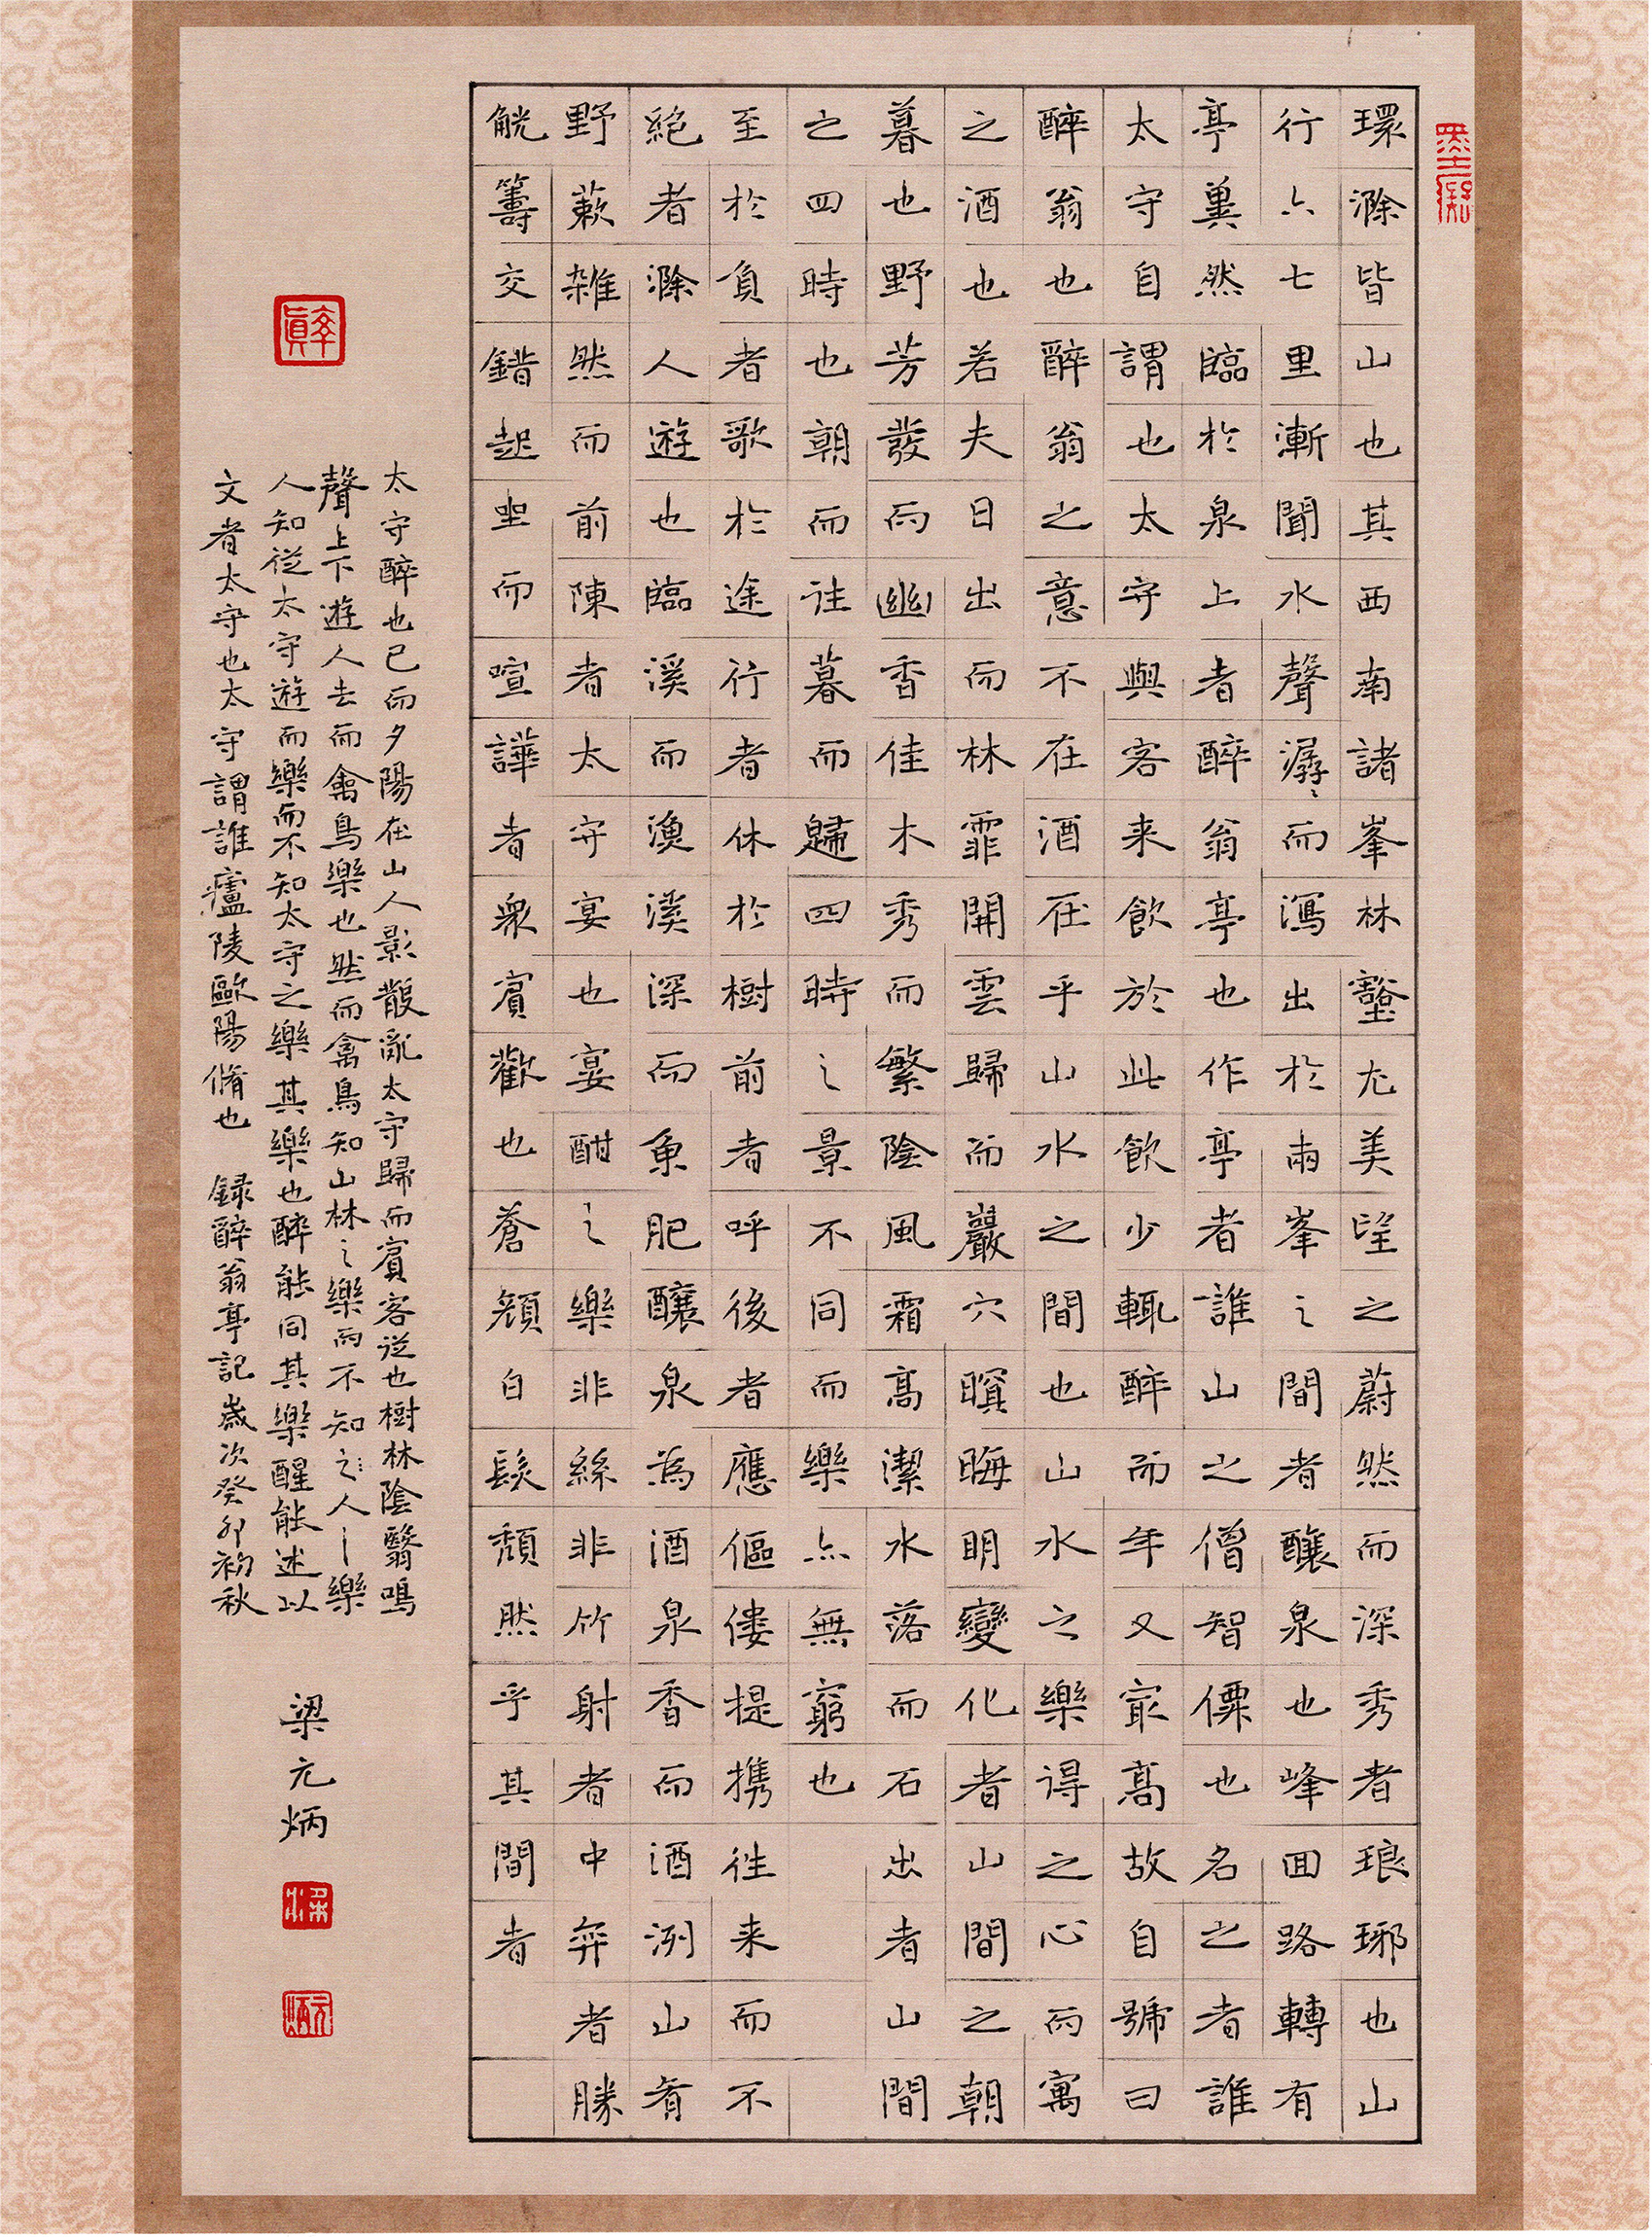 環滁皆山也其西南諸峯林壑尤美望之蔚然而深秀者琅琊也山
行六七里漸聞水聲潺〻而瀉出於兩峯之間者釀泉也峰回路轉有
亭翼然臨於泉上者醉翁亭也作亭者誰山之僧智僊也名之者誰
太守自謂也太守與客来飲於此飲少輒醉而年又最高故自號曰
醉翁也醉翁之意不在酒在乎山水之間也山水之樂得之心而寓
之酒也若夫日出而林霏開雲歸而巖穴暝晦明變化者山間之朝
暮也野芳發而幽香佳木秀而繁陰風霜高潔水落而石出者山間
之四時也朝而往暮而歸四時之景不同而樂亦無窮也
至於負者歌於途行者休於樹前者呼後者應傴僂提携往来而不
絶者滁人遊也臨溪而漁溪深而魚肥釀泉為酒泉香而酒洌山肴
野蔌雜然而前陳者太守宴也宴酣之樂非絲非竹射者中弈者勝
觥籌交錯起坐而喧譁者衆賓歡也蒼顏白髮頹然乎其間者
率真
太守醉也已而夕陽在山人影散亂太守歸而賓客從也樹林陰翳鳴
聲上下遊人去而禽鳥樂也然而禽鳥知山林之樂而不知之人之樂
人知從太守遊而樂而不知太守之樂其樂也醉能同其樂醒能述以
文者太守也太守謂誰廬陵歐陽脩也 録醉翁亭記歲次癸卯初秋
梁元炳
梁
元炳